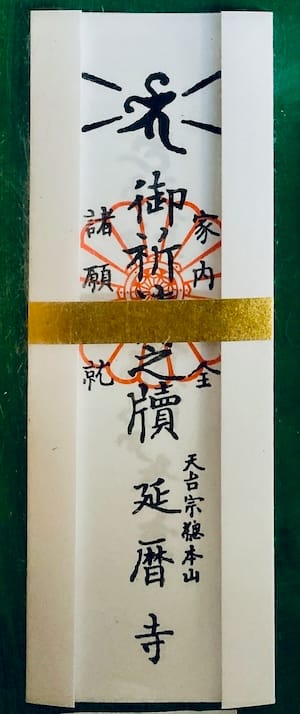 家内 全
御祈 之牘
諸願 就
天台宗總本山
延暦寺